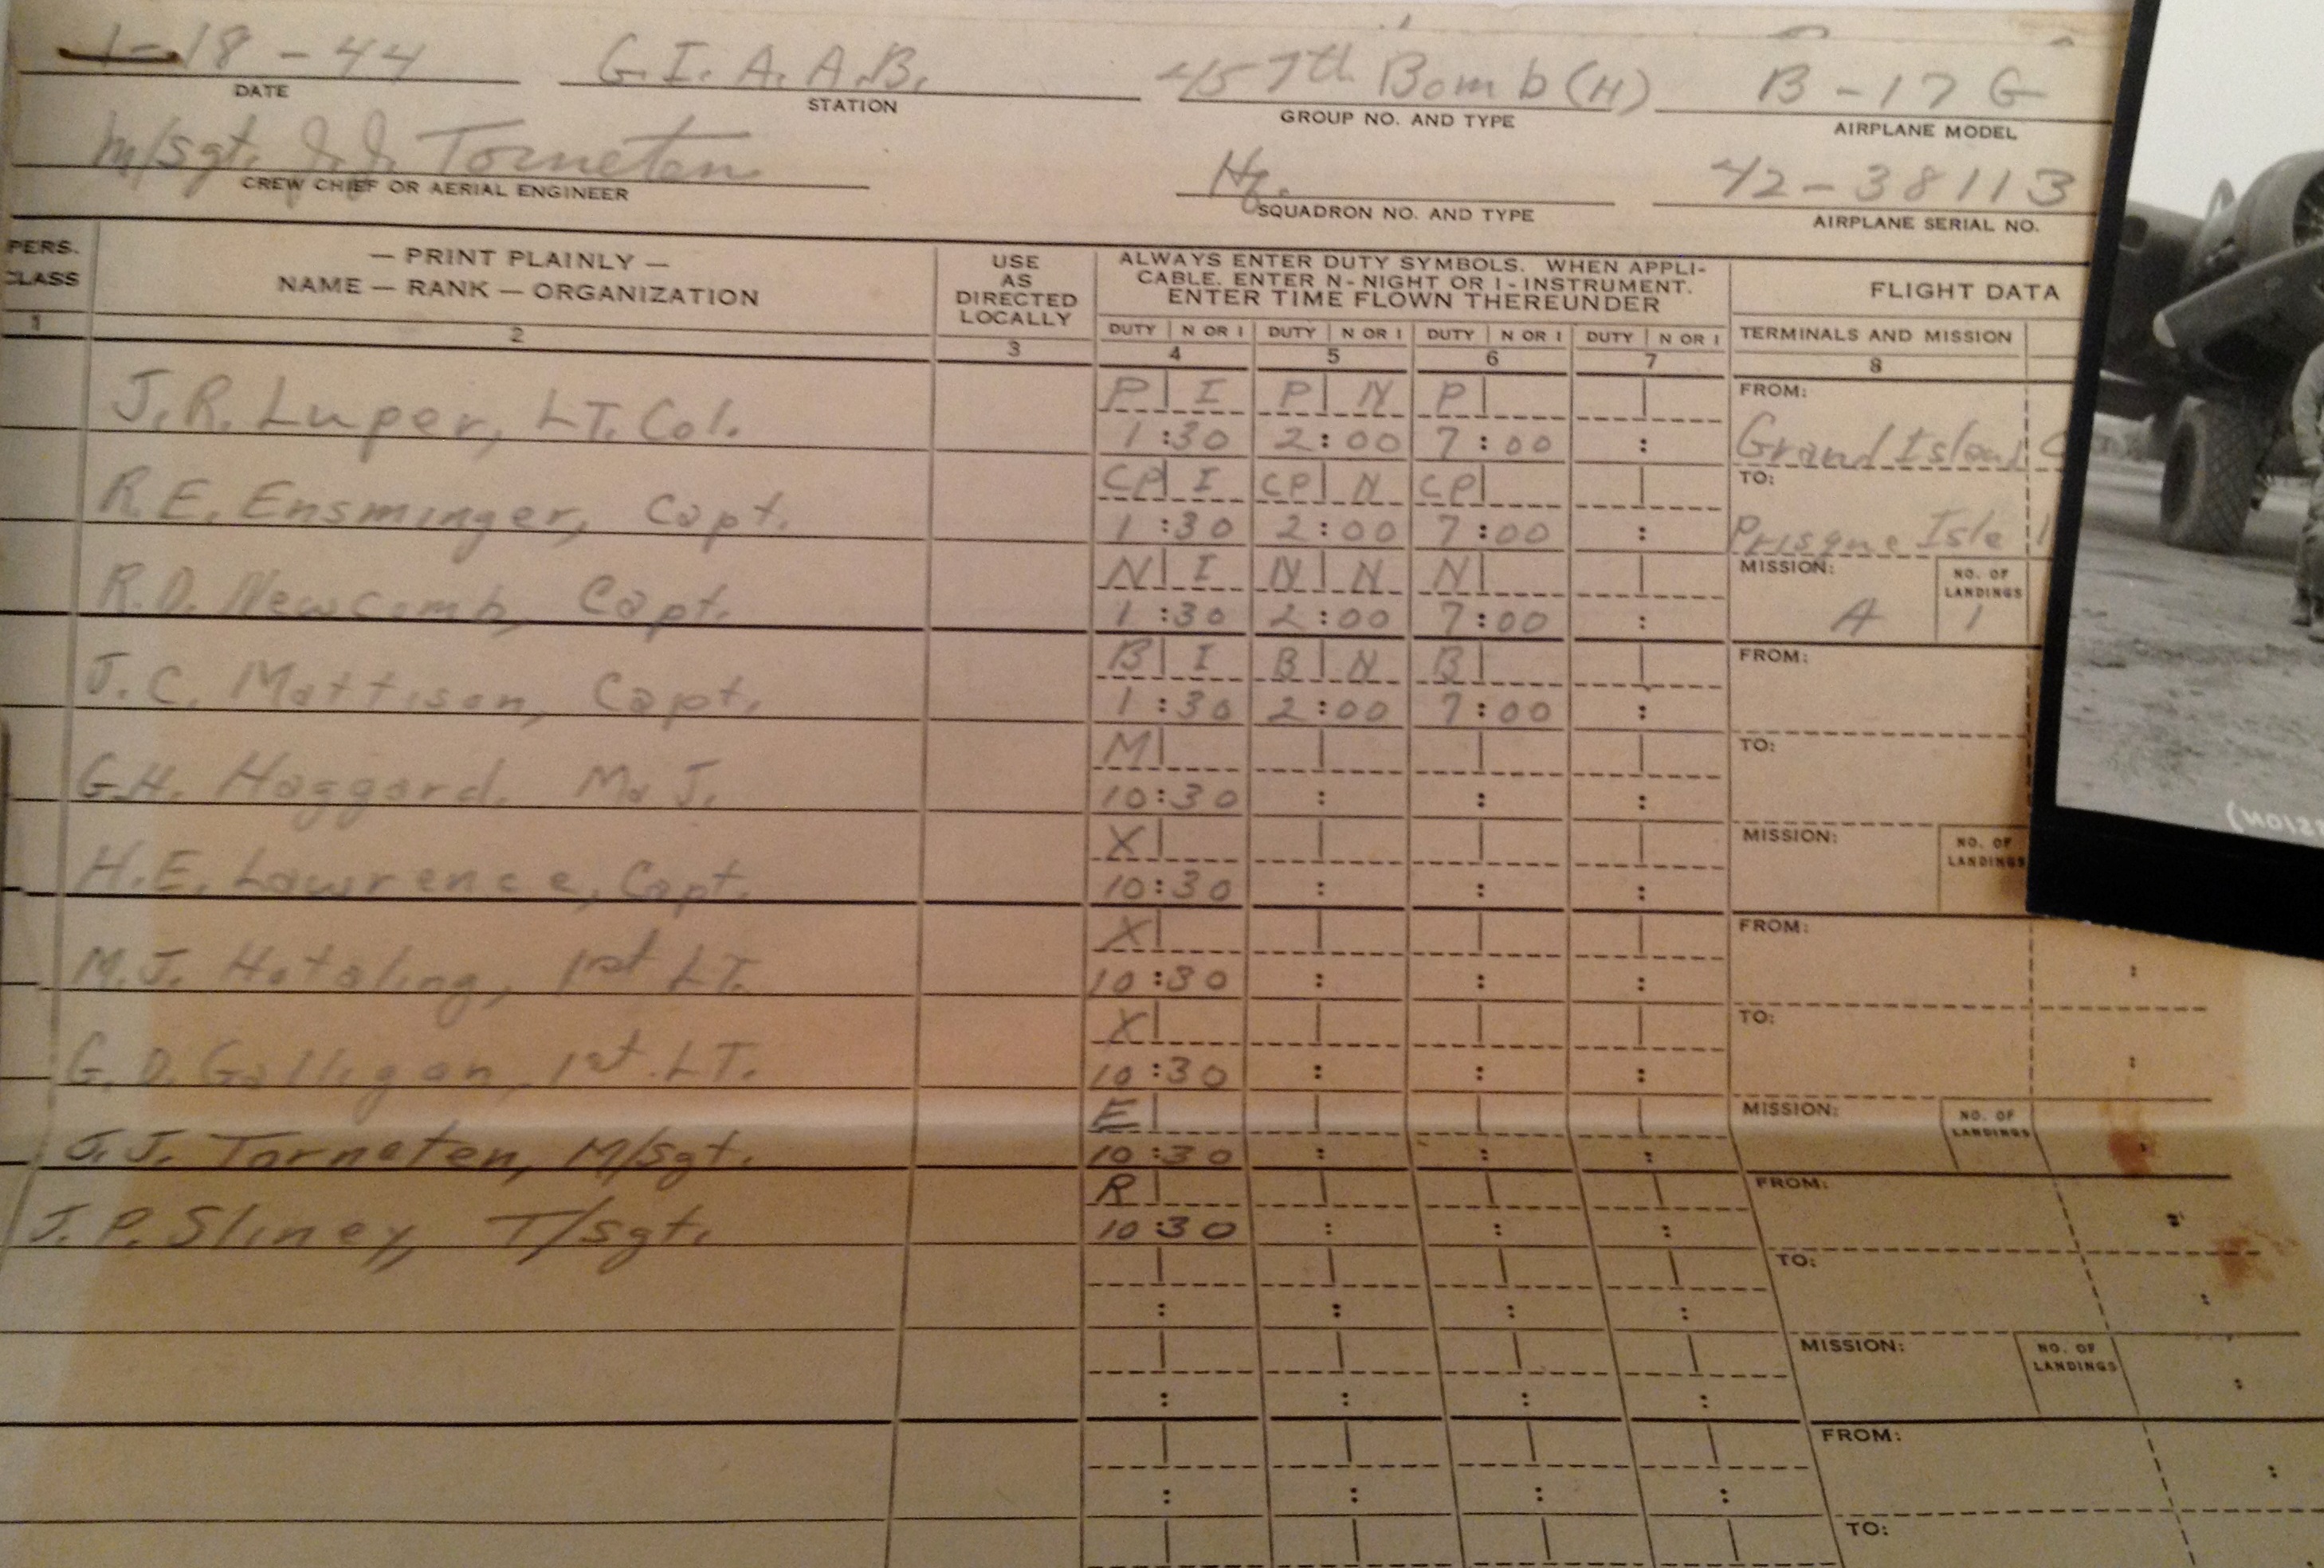 1-18-44 G.I.A.A.B. 457th Bomb (H) B-17G
DATE STATION GROUP NO. AND TYPE AIRPLANE MODEL
M/Sgt. J.J. Torneten Hq. 42-38113
CREW CHIEF OR AERIAL ENGINEER SQUADRON NO. AND TYPE AIRPLANE SERIAL NO.
PERS. CLASS
— PRINT PLAINLY —
NAME — RANK — ORGANIZATION
USE AS DIRECTED LOCALLY
ALWAYS ENTER DUTY SYMBOLS. WHEN APPLI-
CABLE. ENTER N-NIGHT OR I-INSTRUMENT.
ENTER TIME FLOWN THEREUNDER
FLIGHT DATA
DUTY N OR I DUTY N OR I DUTY N OR I DUTY N OR I TERMINALS AND MISSION
1 2 3 4 5 6 7 8
P I P N P FROM:
J.R. Luper, LT. Col. 1:30 2:00 7:00 : Grand Island
CP I CP N CP TO:
R.E. Ensminger, Capt. 1:30 2:00 7:00 : Prisque Isle
N I N N N MISSION: NO. OF LANDINGS
R.D. Newcomb, Capt. 1:30 2:00 7:00 : A 1
B I B N B FROM:
J.C. Mattison, Capt. 1:30 2:00 7:00 :
M TO:
G.H. Haggard. Maj. 10:30 : : :
X MISSION: NO. OF LANDINGS
H.E. Lawrence, Capt. 10:30 : : :
X FROM:
M.J. Hotaling, 1st LT. 10:30 : : : :
X TO:
G.D. Galligan, 1st LT. 10:30 : : : :
E MISSION: NO. OF LANDINGS
J.J. Torneten, M/Sgt. 10:30 : : : :
R FROM:
J.P. Sliney, T/Sgt. 10:30 : : : :
TO:
: : : : :
MISSION: NO. OF LANDINGS
: : : : :
FROM:
: : : : :
TO: